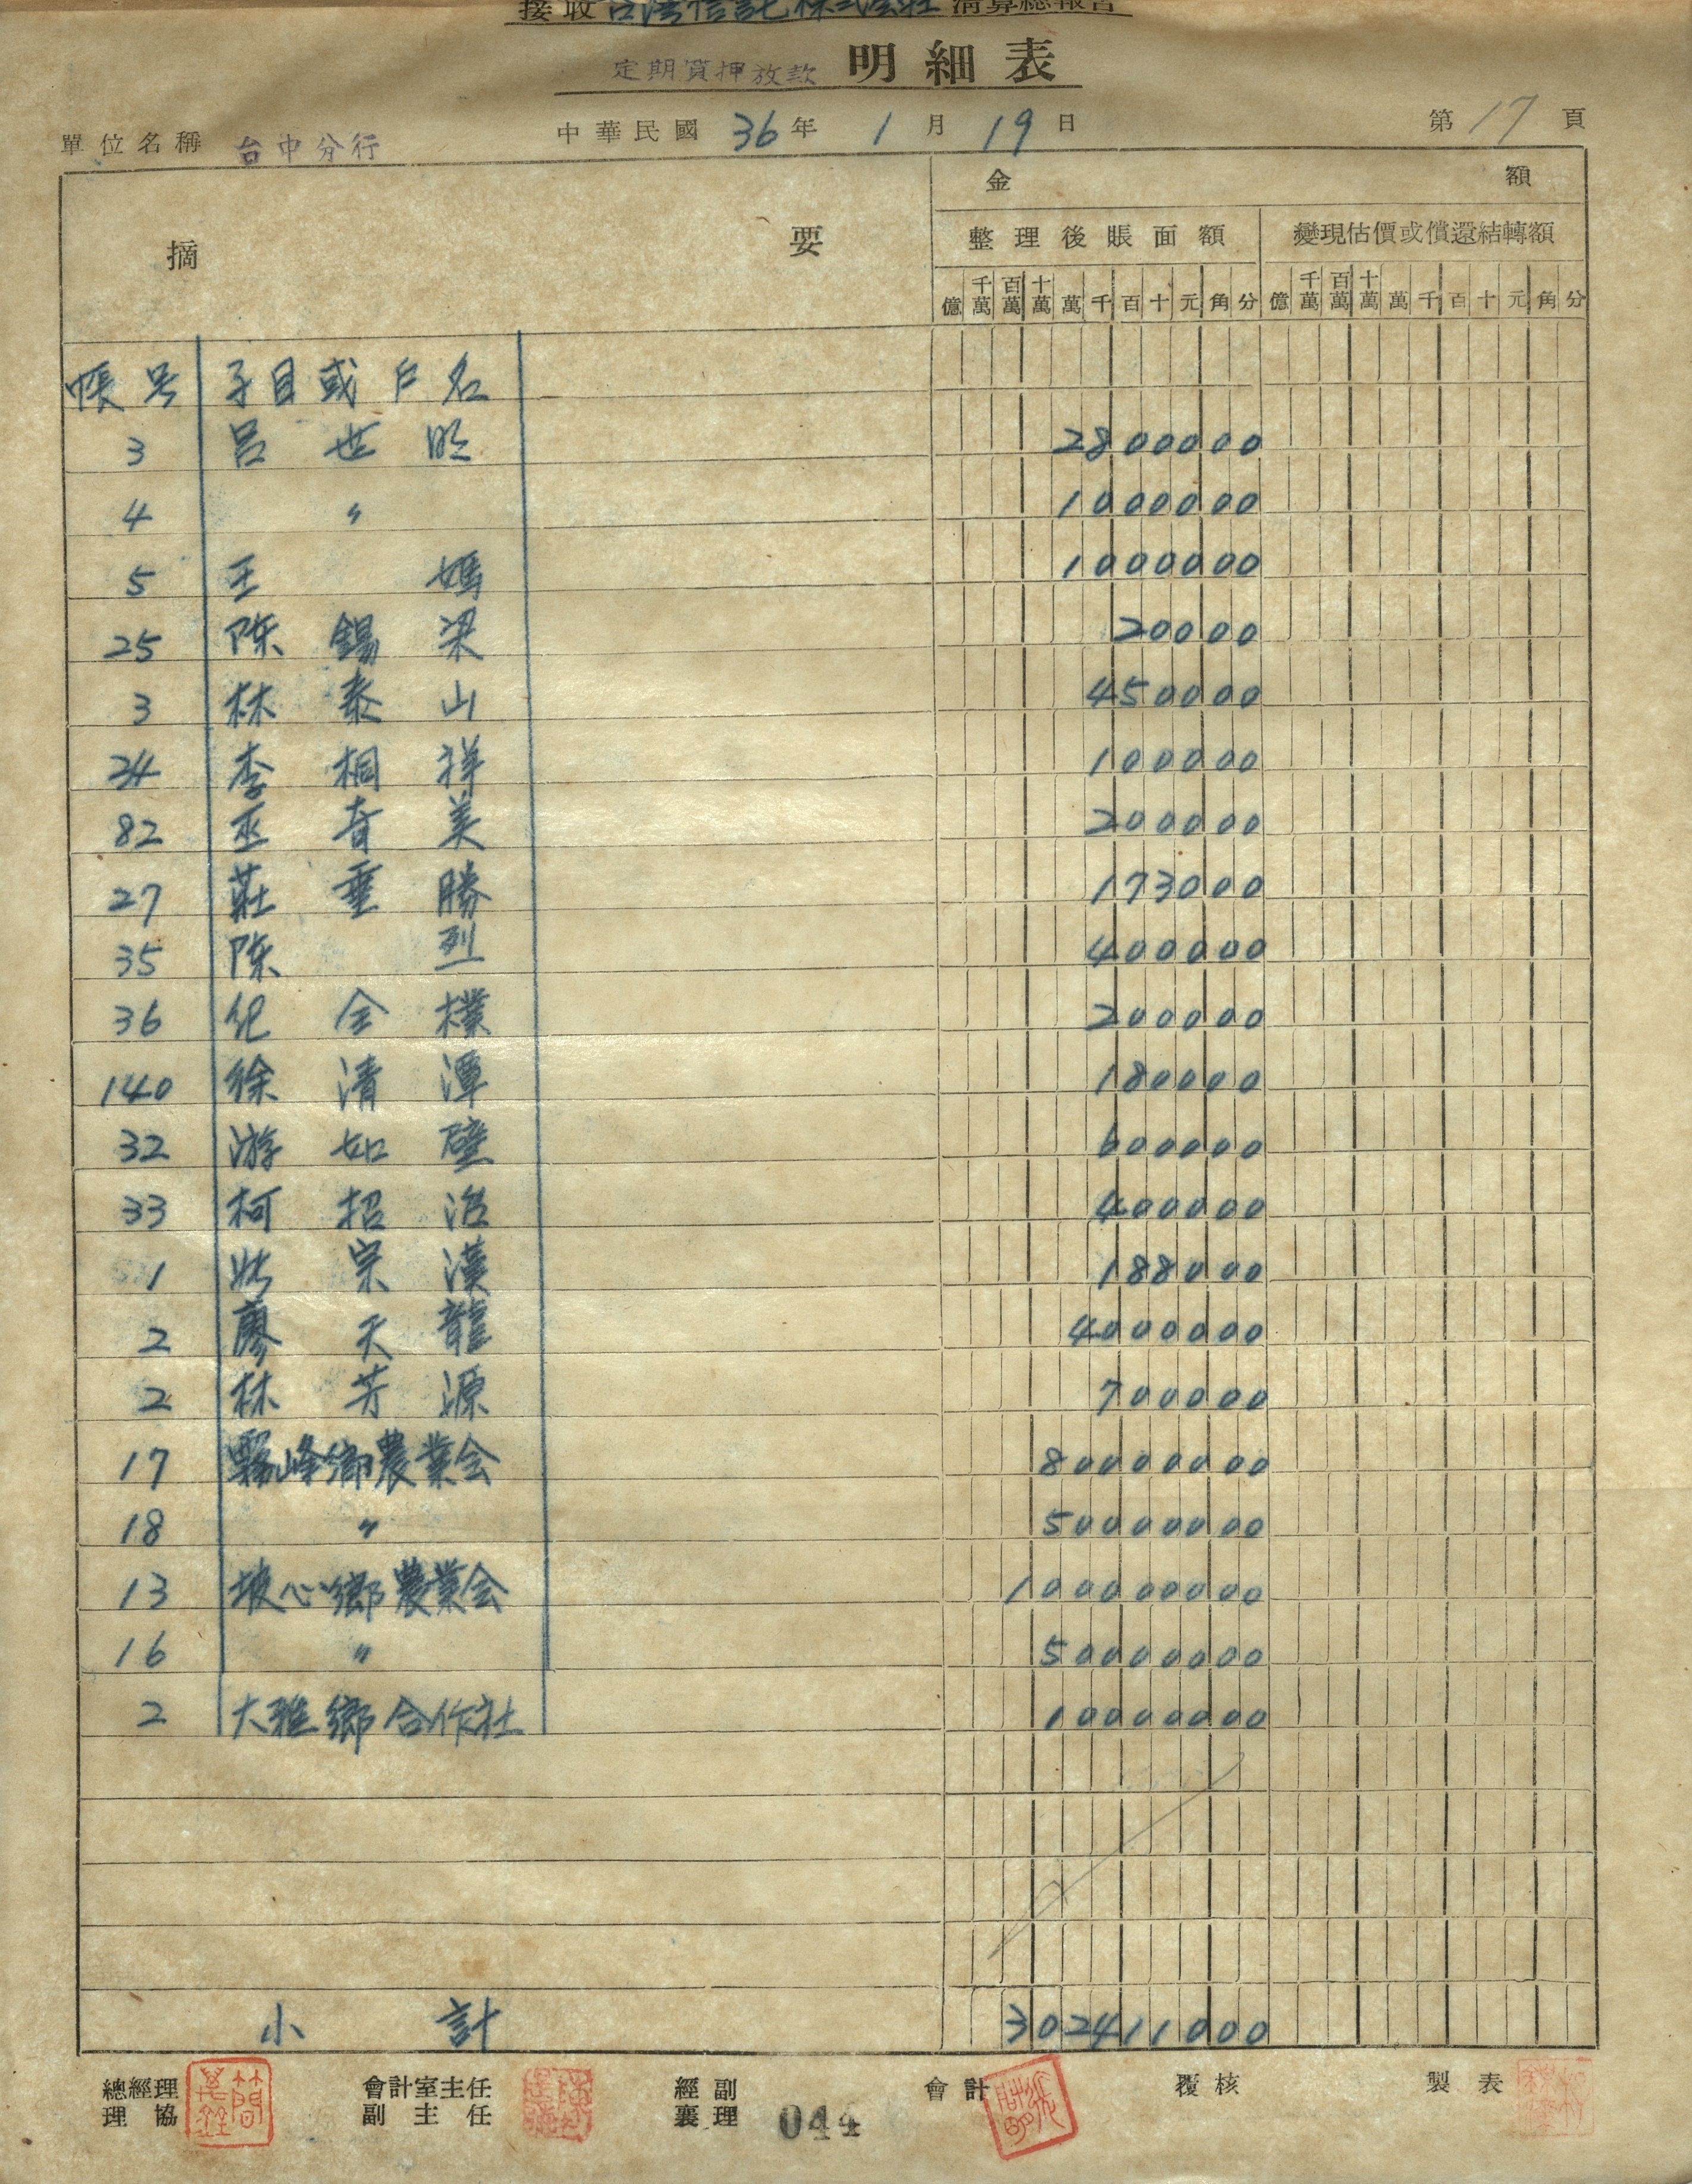 接收台灣信託株式会社清算總報告
定期質押放款 明細表
單位名稱 台中分行 中華民國36年1月19日 第17頁
摘要 金額
整理後賬面額 變現估價或償還結轉額
億 千萬 百萬 十萬 萬 千 百 十 元 角 分 億 千萬 百萬 十萬 萬 千 百 十 元 角 分
帳号 子目或戶名
3 呂世明 2800000
4 〃 1000000
5 王媽 1000000
25 陈錫梁 20000
3 林泰山 450000
24 李桐祥 100000
82 巫春美 200000
27 莊垂勝 173000
35 陈烈 400000
36 纪金樸 200000
140 徐清潭 180000
32 游如璧 600000
33 柯招治 400000
1 宗漢 188000
2 廖天龍 4000000
2 林芳源 700000
17 霧峰鄉農業会 80000000
18 〃 50000000
13 坡心鄉農業会 100000000
16 〃 50000000
2 大雅鄉合作社 10000000
小計 302411000
總經理 會計室主任 經副 會計 覆核 製表
理協 副主任 襄理 044